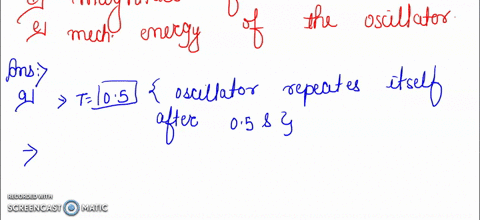 mech. energy of the oscillator.
Ans:→
a) → T = 0.5 { oscillator repeates itself
after 0.5 s }
→
RECORDED WITH
SCREENCAST MATIC